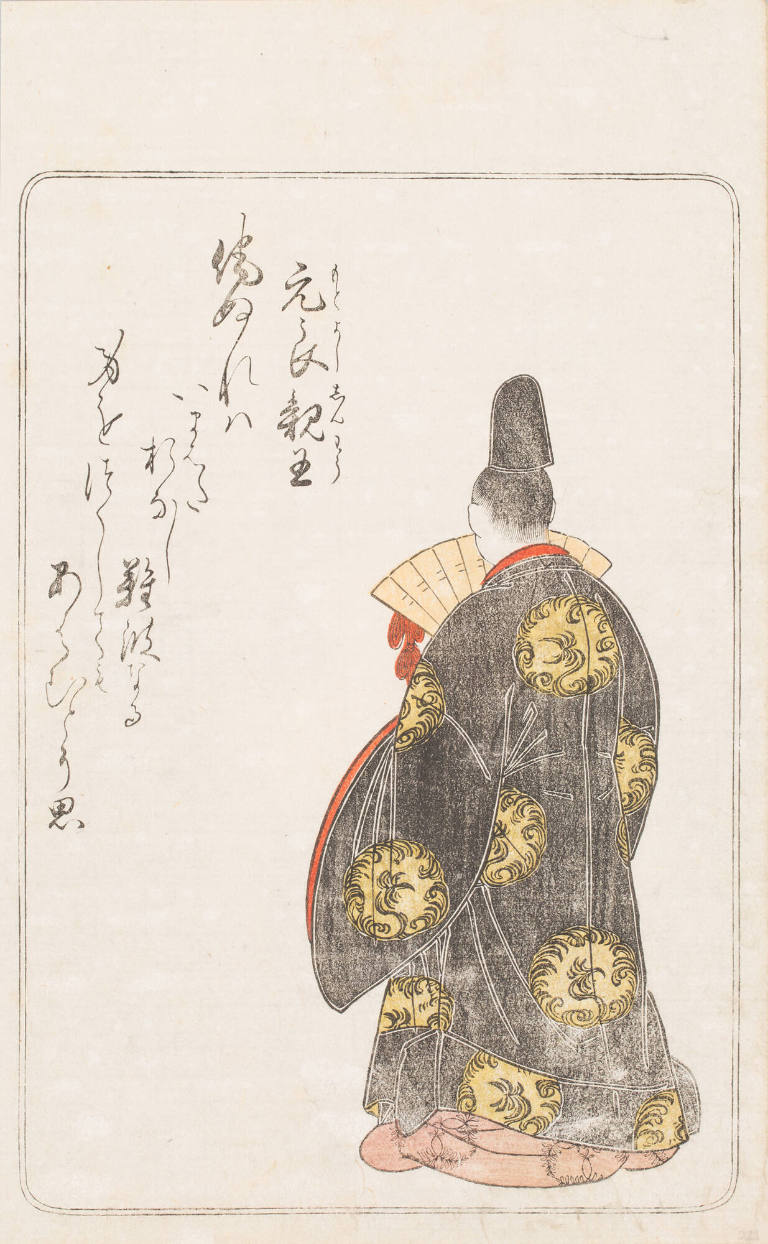 元良親王
もとよししんわう
侘ぬれハ
いまはた
おなし
難波なる
身をつくしても
あはむとそ思